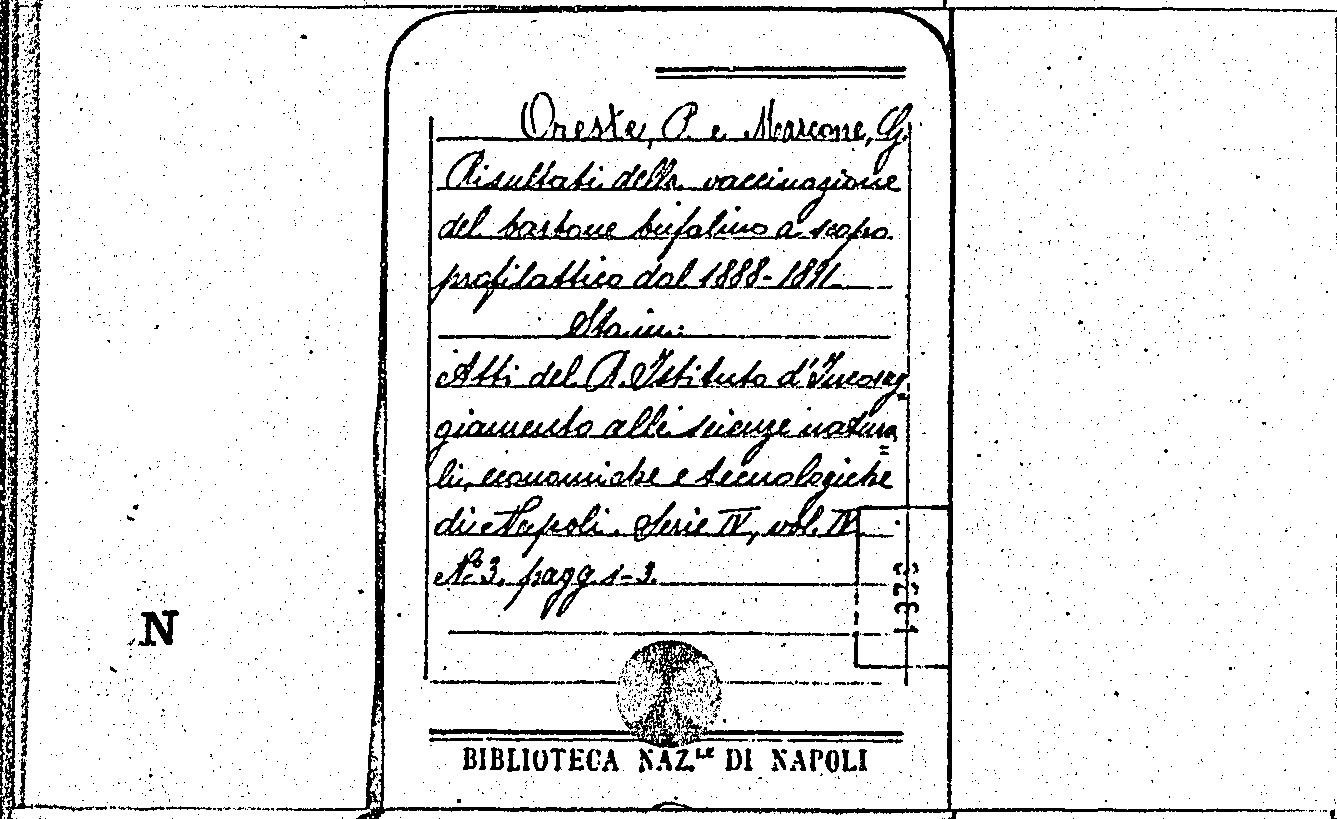 Oreste, P. e Marcone, G.
Risultati della vaccinazione
del barbone bufalino a scopo
profilattico dal 1888-1891
Sta in:
Atti del R. Istituto d'Incorag=
giamento alle scienze natura=
li, economiche e tecnologiche
di Napoli. Serie IV, vol. IV
N.º 3. pagg. 1-3.
N
BIBLIOTECA NAZ.LE DI NAPOLI